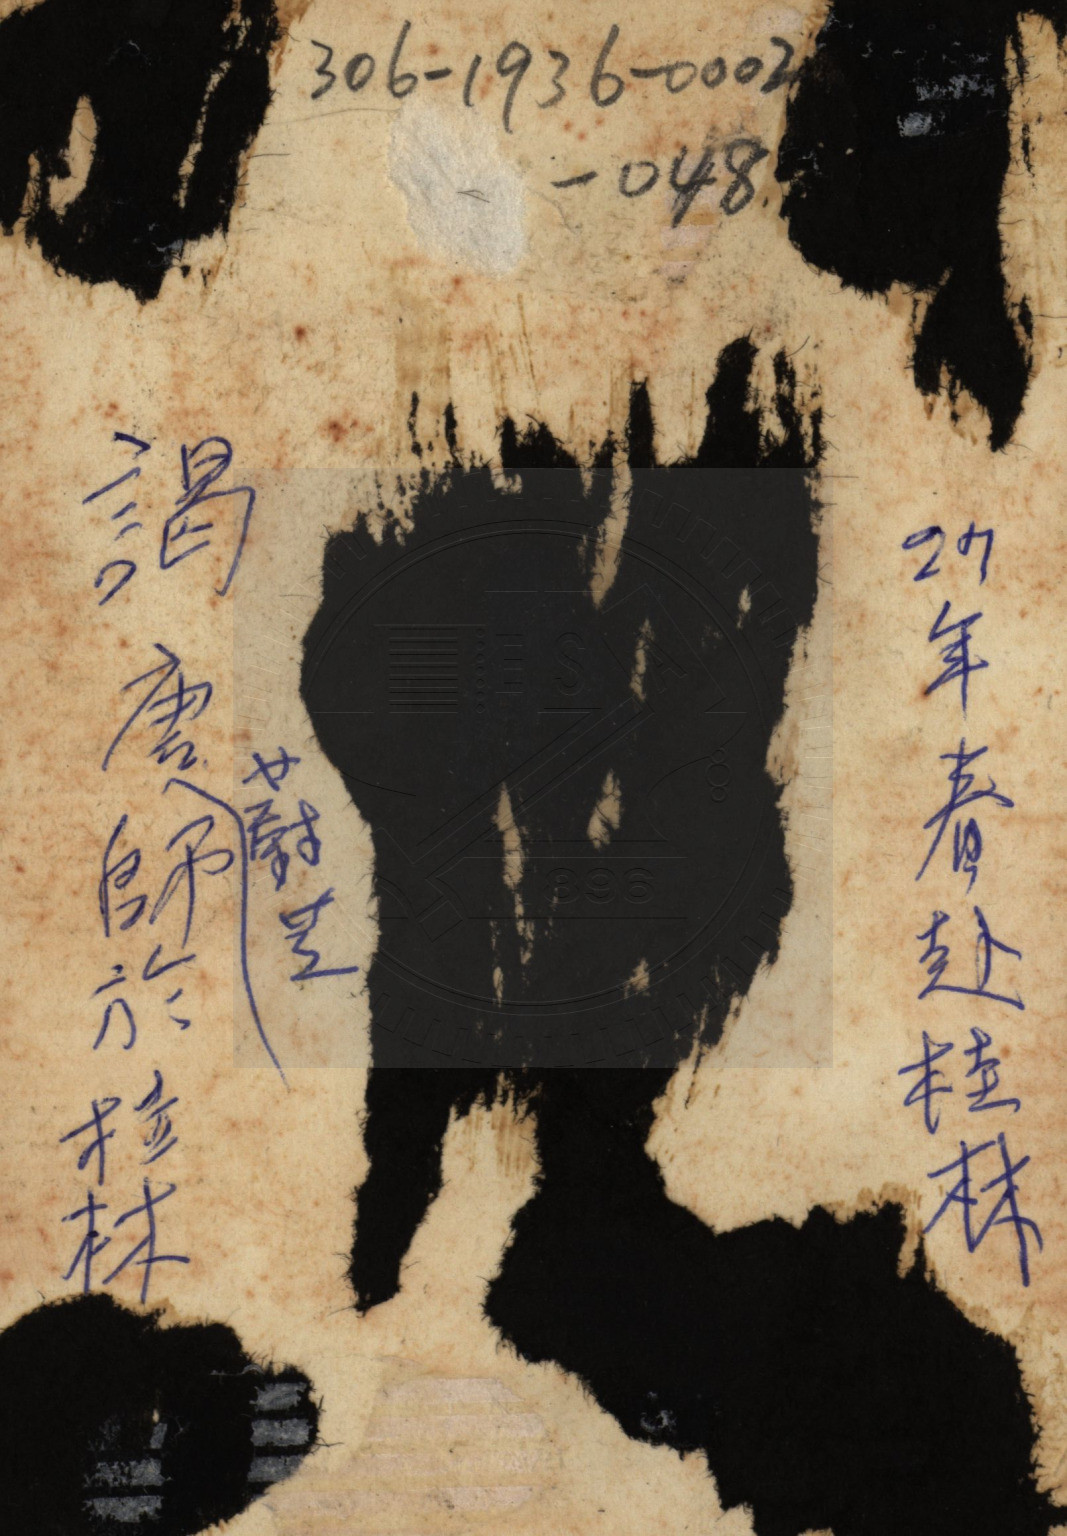 306-1936-0002
-048.
27年春赴桂林
謁唐師於桂林
蔚芝
1896